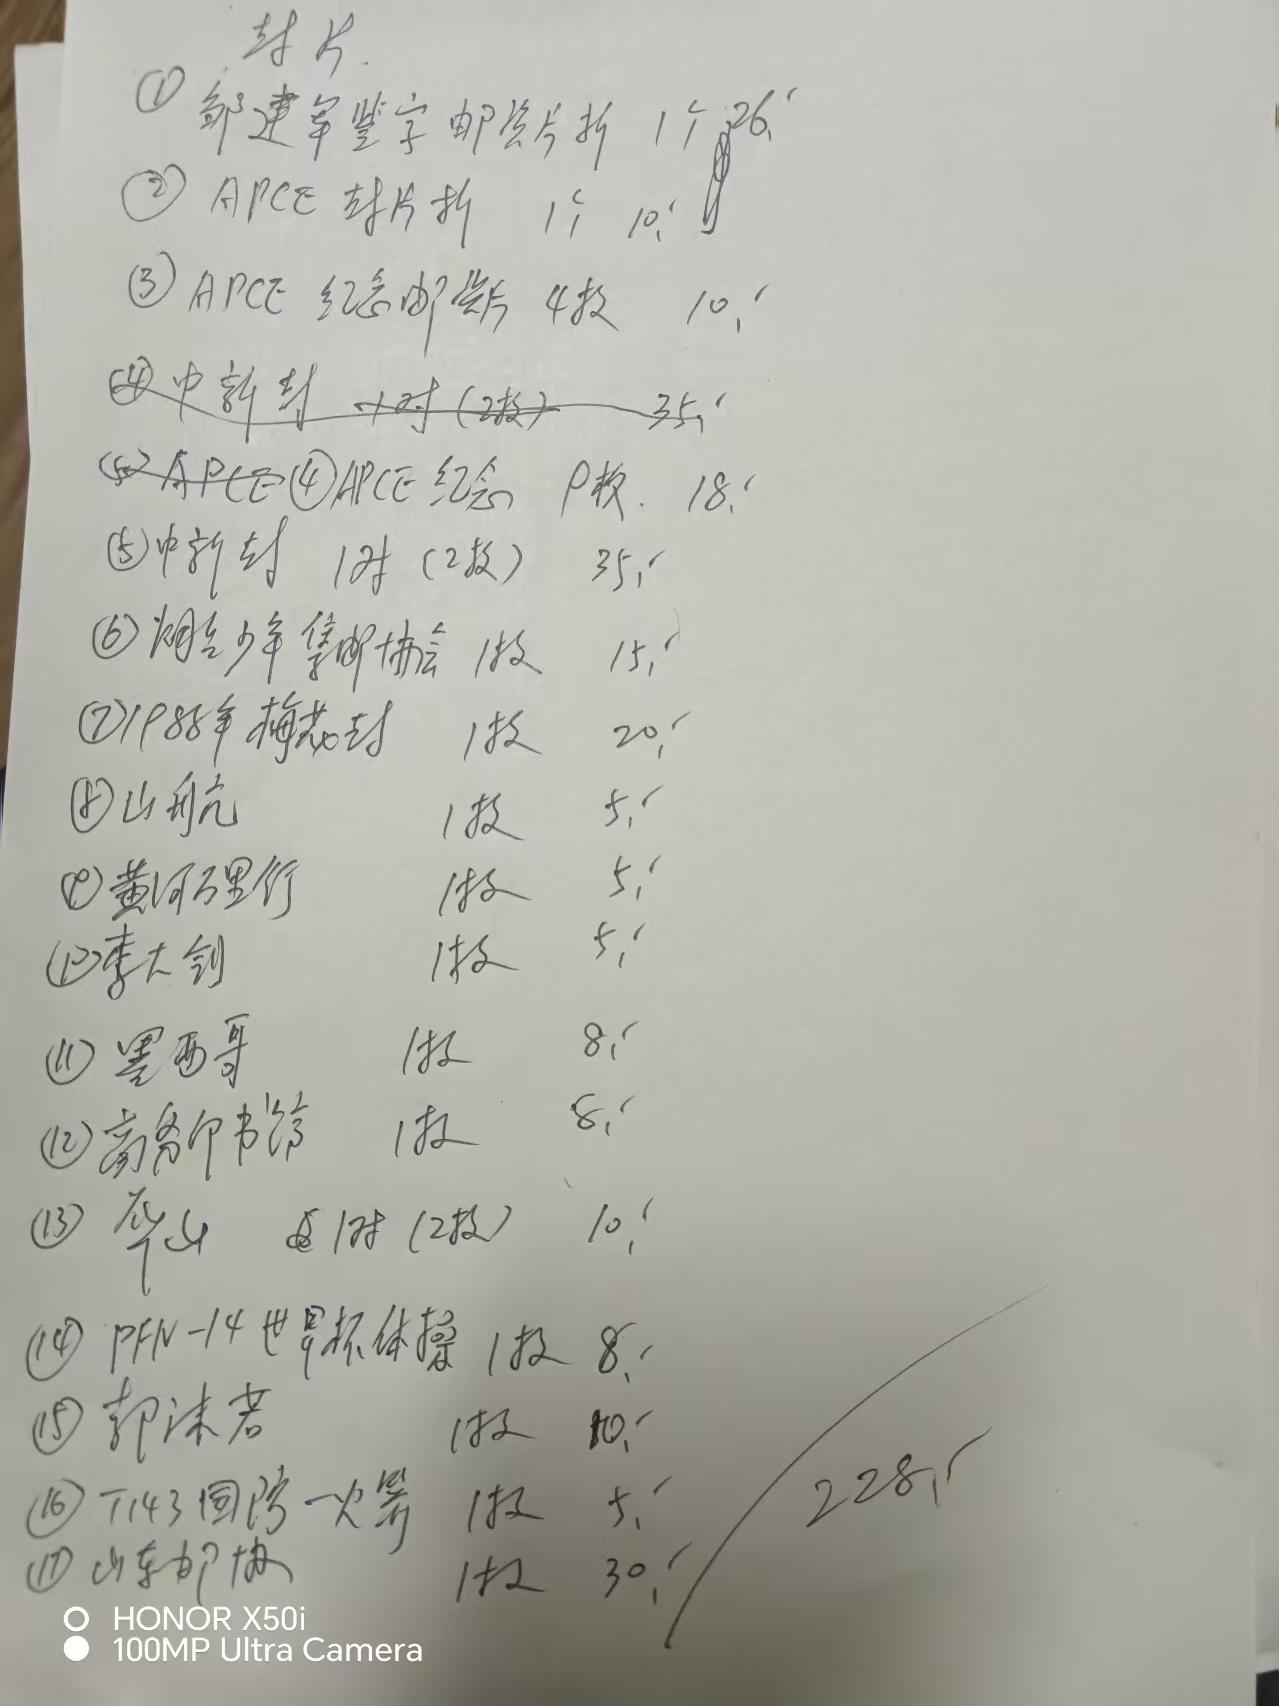 封片.
① 邹建军签字邮资片折 1个 26,
② APCE 封片折 1个 10,
③ APCE 纪念邮资片 4枚 10,
④ 中新封 1对(2枚) 35,
⑤ APCE ④ APCE 纪念 9枚. 18,
⑤ 中新封 1对(2枚) 35,
⑥ 烟台少年集邮协会 1枚 15,
⑦ 1988年梅花封 1枚 20,
⑧ 山航 1枚 5,
⑨ 黄河万里行 1枚 5,
⑩ 李大钊 1枚 5,
⑪ 墨西哥 1枚 8,
⑫ 商务印书馆 1枚 8,
⑬ 华山 1对(2枚) 10,
⑭ PFN-14 世界杯体操 1枚 8,
⑮ 郭沫若 1枚 10,
⑯ T143 国防 1枚 5,
⑰ 山东邮协 1枚 30,
228,
HONOR X50i
100MP Ultra Camera